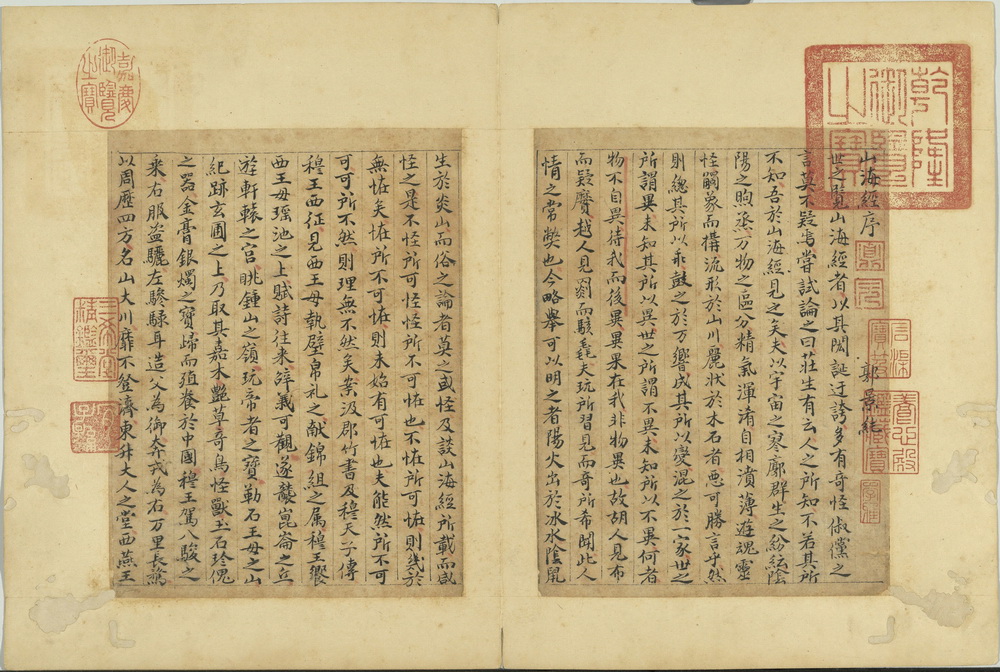 山海經序
郭景純
世之覽山海經者以其閎誕迂誇多有奇怪俶黨之
言莫不疑焉嘗試論之曰莊生有云人之所知不若其所
不知吾於山海經見之矣夫以宇宙之寥廓群生之紛紜陰
陽之煦烝万物之區分精氣渾淆自相濆薄遊魂靈
怪觸象而構流形於山川麗狀於木石者惡可勝言乎然
則總其所以乖鼓之於万響成其所以變混之於一家世之
所謂異未知其所以異世之所謂不異未知所以不異何者
物不自異待我而後異異果在我非物異也故胡人見布
而疑黂越人見罽而駭毳夫玩所習見而奇所希聞此人
情之常獘也今略舉可以明之者陽火出於冰水陰鼠
生於炎山而俗之論者莫之或怪及談山海經所載而咸
怪之是不怪所可怪怪所不可怪也不怪所可怪則幾於
無怪矣怪所不可怪則未始有可怪也夫能然所不可
可可所不然則理無不然矣案汲郡竹書及穆天子傳
穆王西征見西王母執璧帛礼之献錦組之属穆王饗
西王母瑶池之上賦詩往来辞義可觀遂襲崑崙之丘
遊軒轅之宫眺鍾山之嶺玩帝者之寶勒石王母之山
紀跡玄圃之上乃取其嘉木艶草奇鳥怪獸玉石珍傀
之器金膏銀燭之寶歸而殖養於中國穆王駕八駿之
乘右服盗驪左驂騄耳造父為御奔戎為右万里長騖
以周歷四方名山大川靡不登濟東升大人之堂西燕王
乾隆御覽之寶
嘉慶御覽之寶